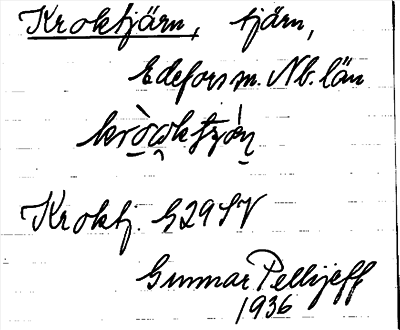 Kroktjärn, tjärn,
Edefors sn. Nb. län
Kroktj. G29SV
Gunnar Pellijeff
1936